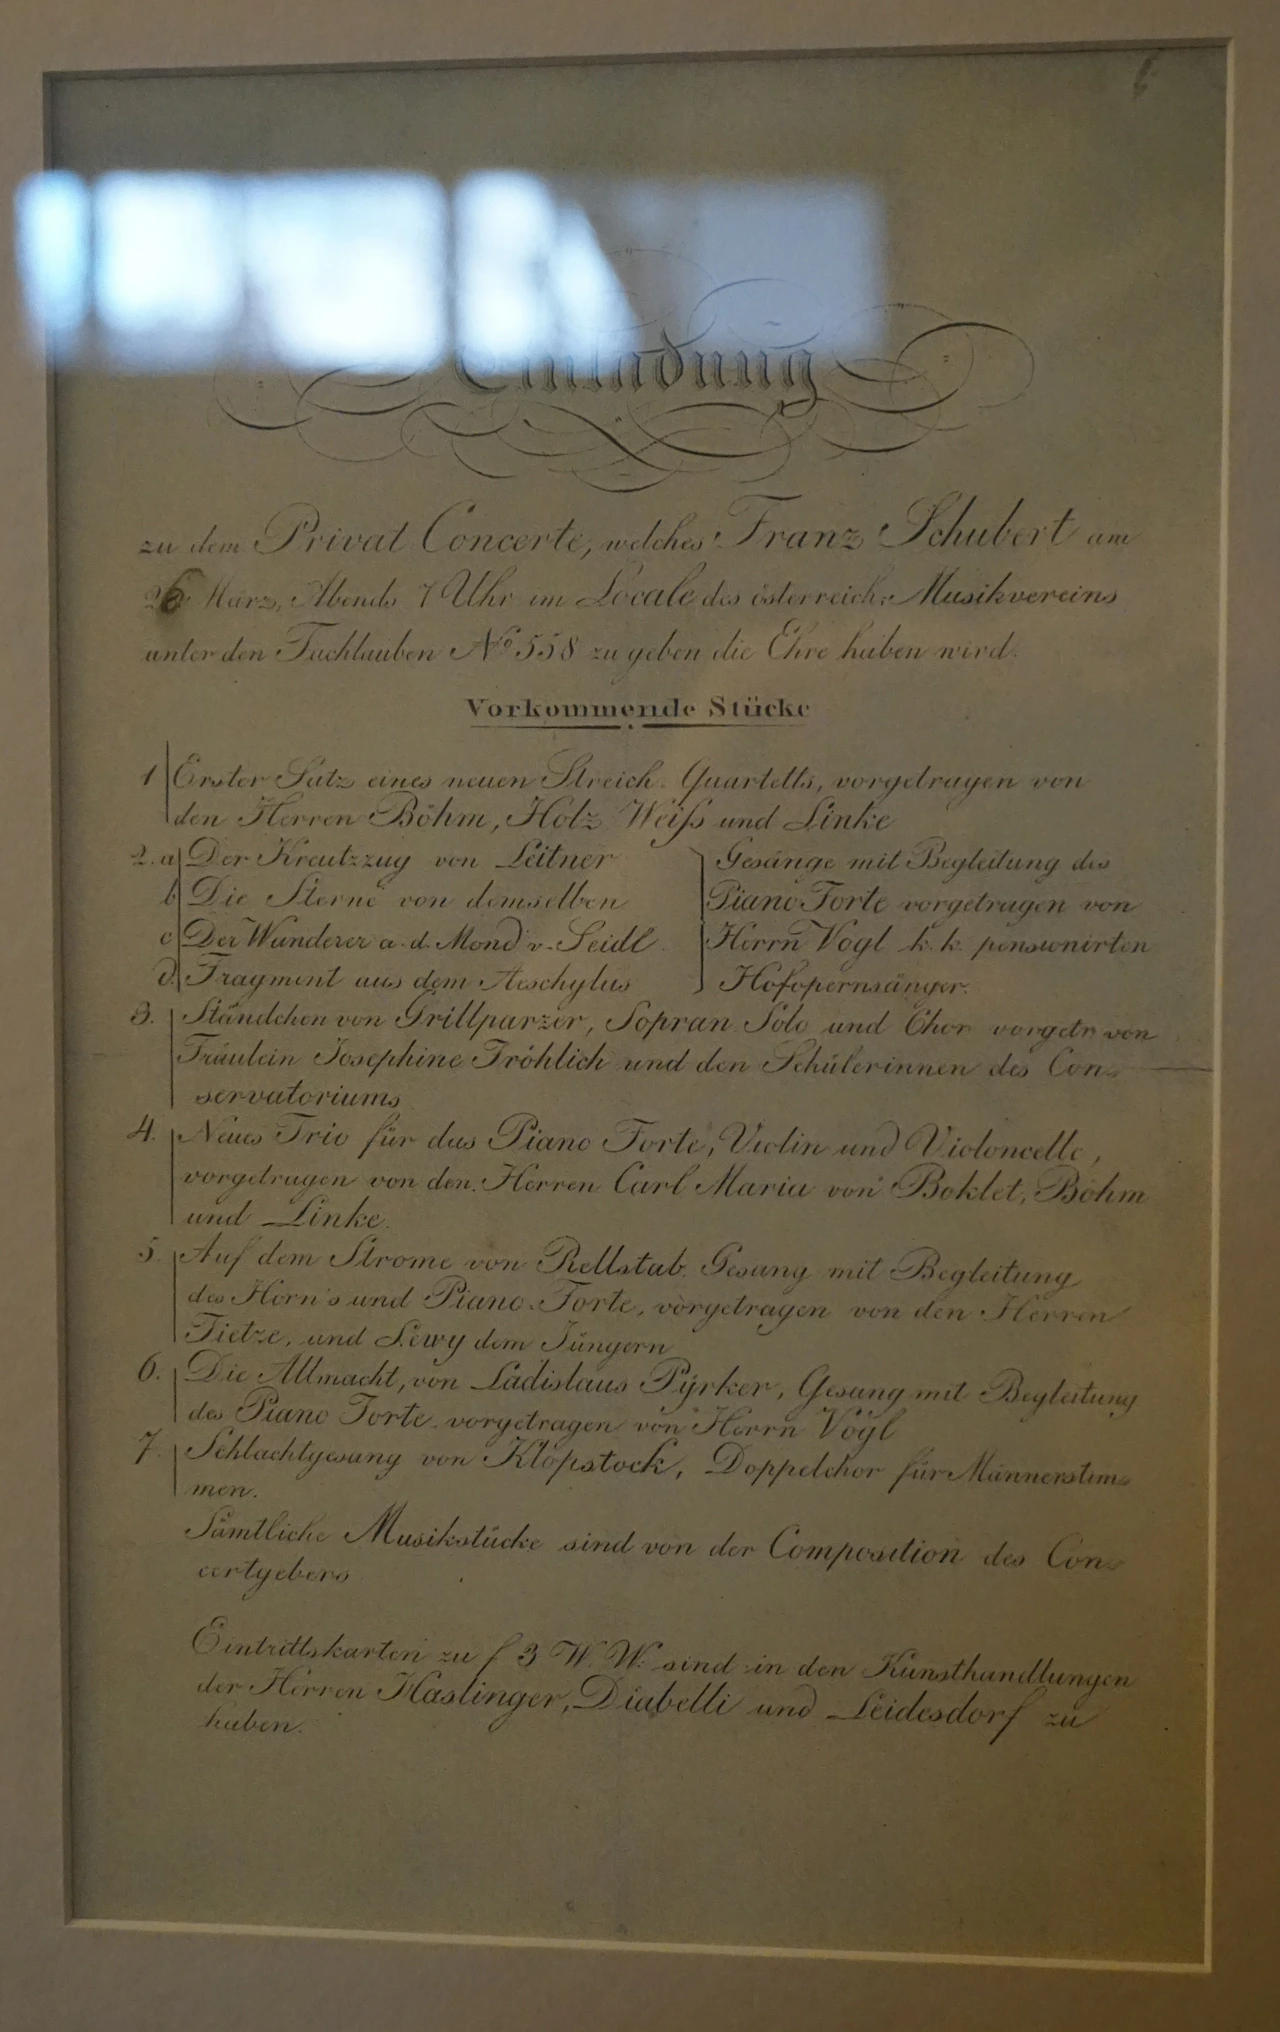 Einladung
zu dem Privat Concerte, welches Franz Schubert am
26 März, Abends 7 Uhr im Locale des österreich: Musikvereins
unter den Tuchlauben No 558 zu geben die Ehre haben wird.
Vorkommende Stücke
1 Erster Satz eines neuen Streich-Quartetts, vorgetragen von
den Herren Böhm, Holz, Weiß und Linke
2. a Der Kreutzzug von Leitner
b Die Sterne von demselben
c Der Wanderer a. d. Mond v. Seidl
d. Fragment aus dem Aeschylus
Gesänge mit Begleitung des
Piano Forte vorgetragen von
Herrn Vogl k. k. pensionirten
Hofopernsänger.
3. Ständchen von Grillparzer, Sopran Solo und Chor vorgetr. von
Fräulein Josephine Fröhlich und den Schülerinnen des Con-
servatoriums
4. Neues Trio für das Piano Forte, Violin und Violoncelle,
vorgetragen von den Herren Carl Maria von Boklet, Böhm
und Linke.
5. Auf dem Strome von Rellstab. Gesang mit Begleitung
des Horn's und Piano-Forte, vorgetragen von den Herren
Tietze, und Lewy dem Jüngern
6. Die Allmacht, von Ladislaus Pyrker, Gesang mit Begleitung
des Piano Forte vorgetragen von Herrn Vogl
7. Schlachtgesang von Klopstock, Doppelchor für Männerstim-
men.
Sämtliche Musikstücke sind von der Composition des Con-
certgebers
Eintrittskarten zu f 3 W. W. sind in den Kunsthandlungen
der Herren Haslinger, Diabelli und Leidesdorf zu
haben.